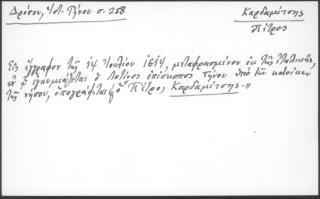 Δρόσου, Ἱστ. Τήνου σ. 258
Καρδαμίτσης
Πέτρος
Εἰς ἔγγραφον τῆς 14 Ἰουλίου 1614, μεταφρασμένον ἐκ τῆς Ἰταλικῆς,
ὁ Λατῖνος ἐπίσκοπος Τήνου ὑπὸ τῶν κατοίκων
τῆς νήσου, ὑπογράφεται ὁ Πέτρος Καρδαμίτσης."